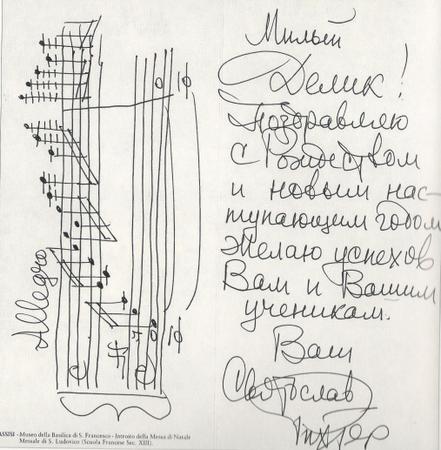 Allegro
Милый
Делик!
Поздравляю
с Рождеством
и новым нас-
тупающим годом
Желаю успехов
Вам и Вашим
ученикам.
Ваш
Святослав
Рихтер
ASSISI - Museo della Basilica di S. Francesco - Introito della Messa di Natale
Messale di S. Ludovico (Scuola Francese Sec. XIII).